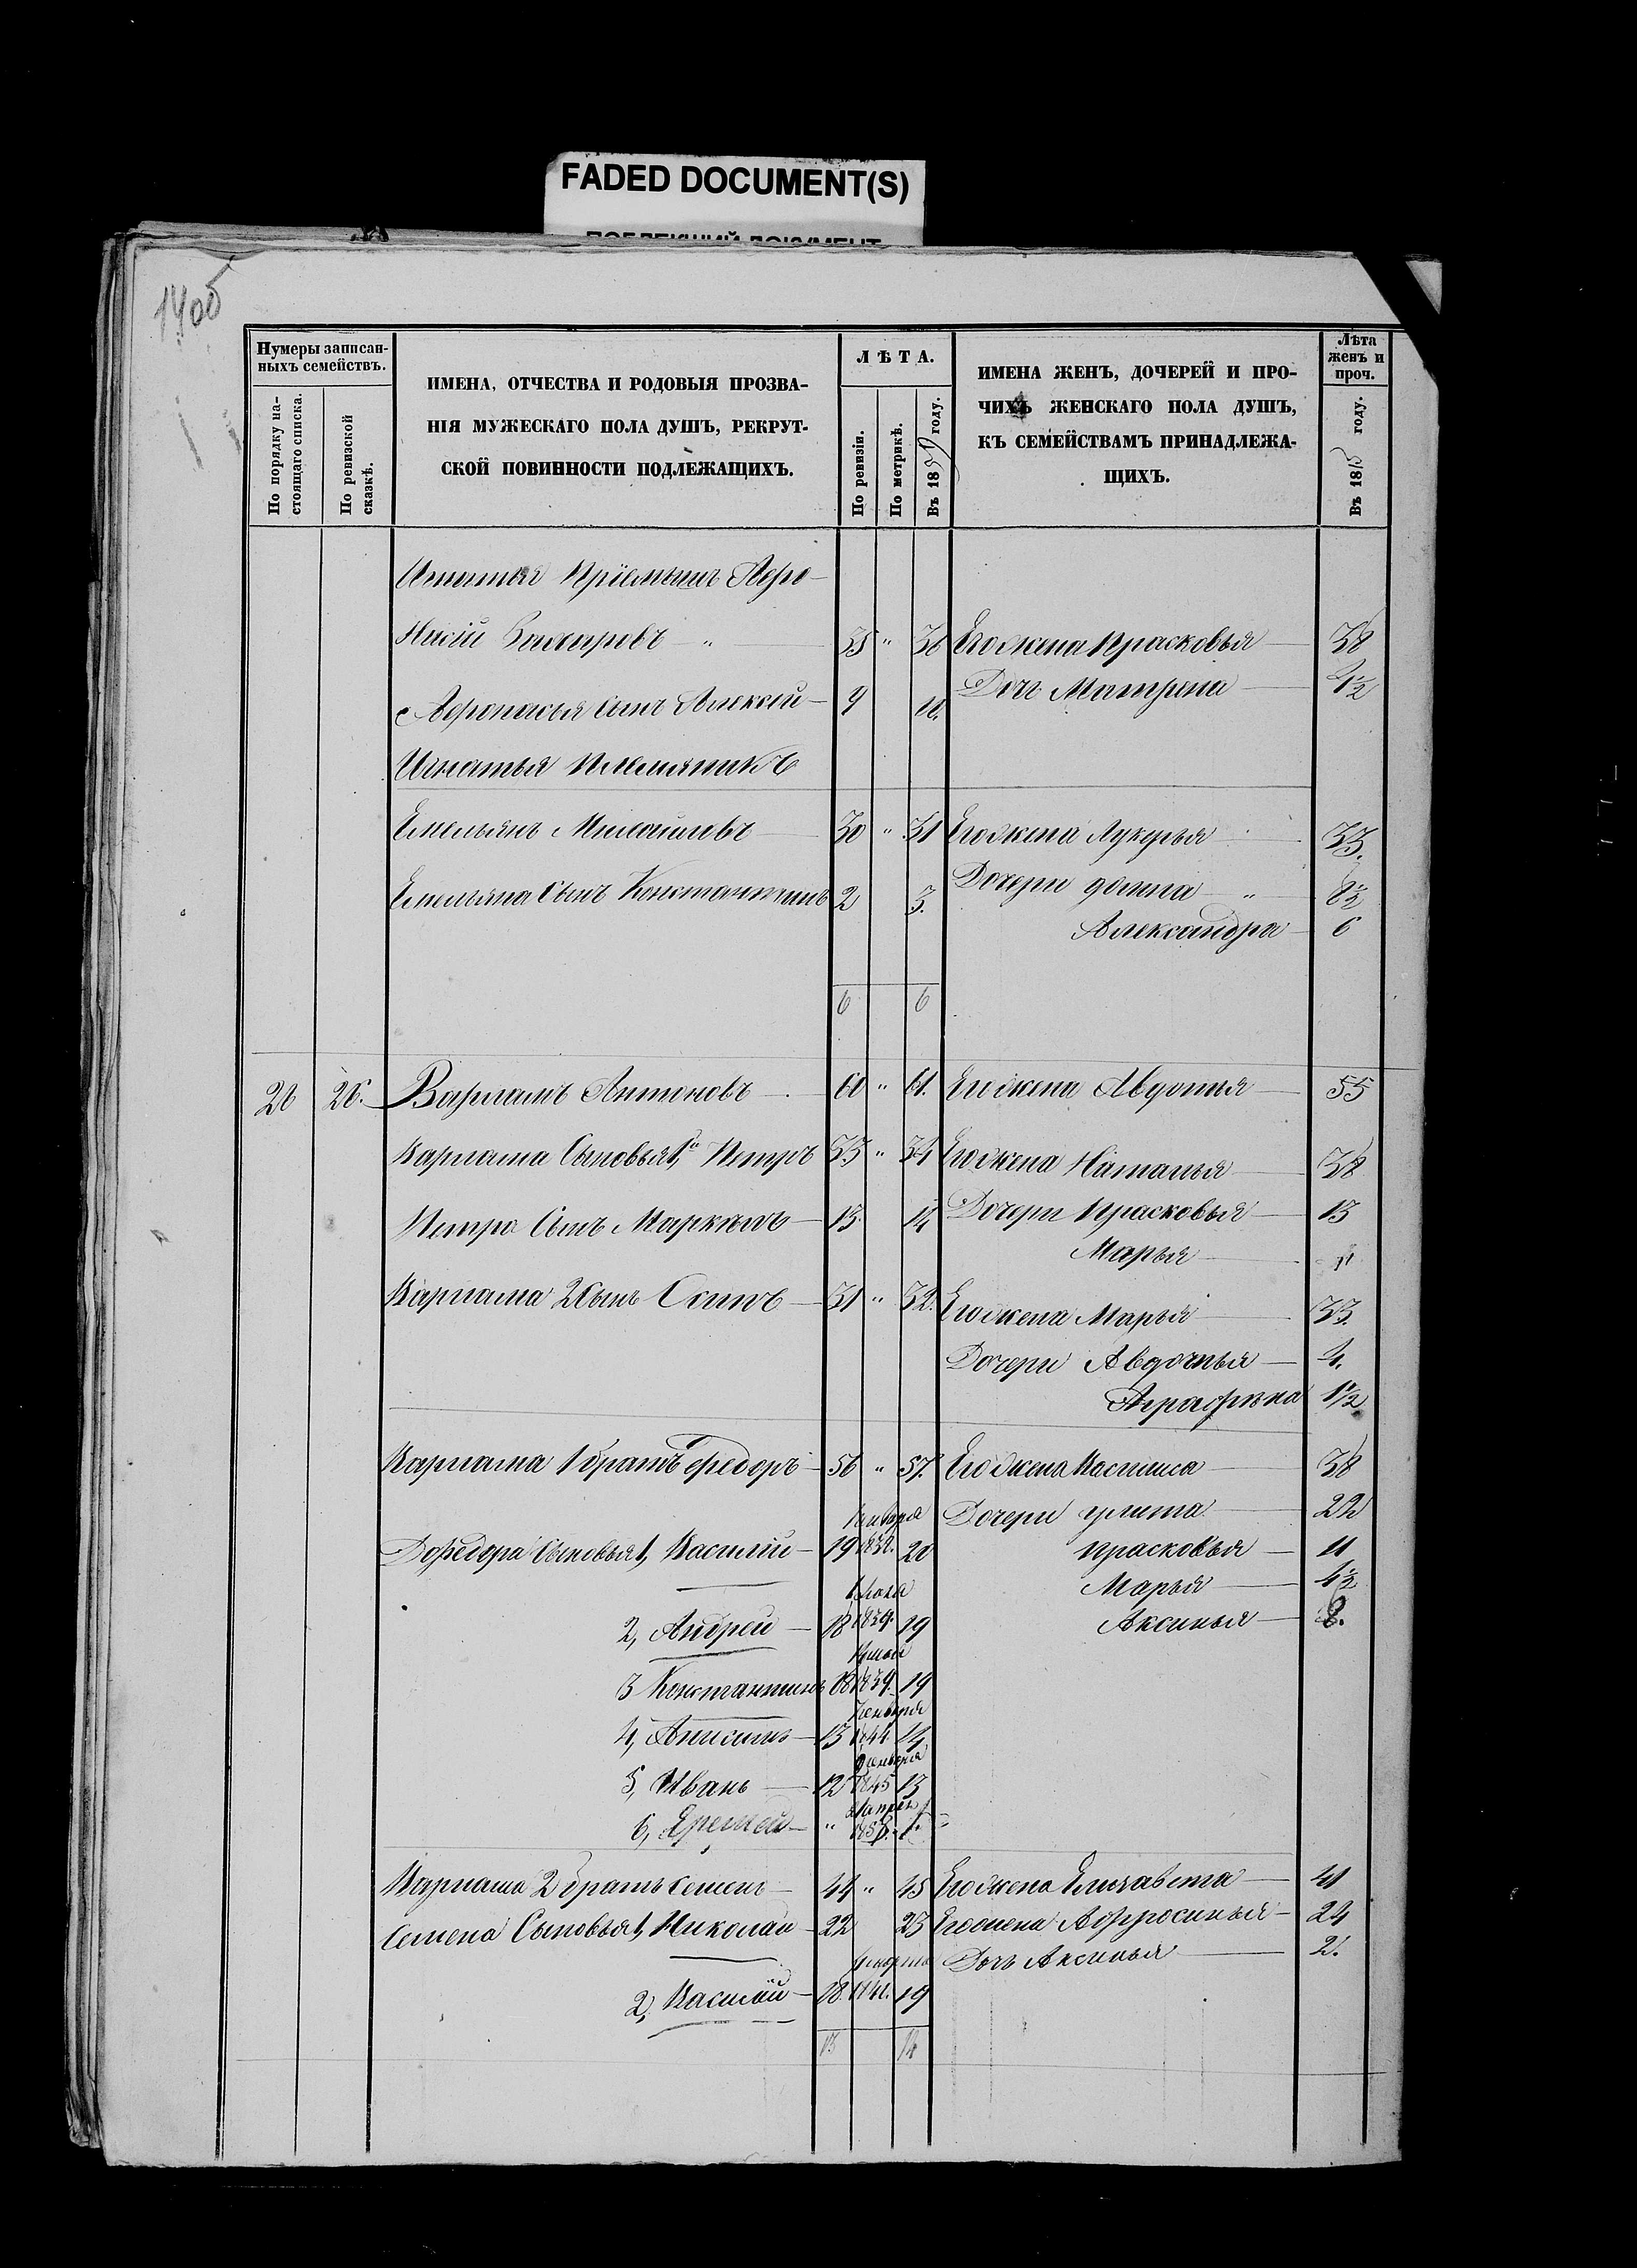 FADED DOCUMENT(S)
140об
Нумеры записан-
ныхъ семействъ.
По порядку на-
стоящаго списка.
По ревизской
сказкѣ.
ИМЕНА, ОТЧЕСТВА И РОДОВЫЯ ПРОЗВА-
НІЯ МУЖЕСКАГО ПОЛА ДУШЪ, РЕКРУТ-
СКОЙ ПОВИННОСТИ ПОДЛЕЖАЩИХЪ.
ЛѢТА.
По ревизіи.
По метрикѣ.
Въ 1859 году.
ИМЕНА ЖЕНЪ, ДОЧЕРЕЙ И ПРО-
ЧИХЪ ЖЕНСКАГО ПОЛА ДУШЪ,
КЪ СЕМЕЙСТВАМЪ ПРИНАДЛЕЖА-
ЩИХЪ.
Лѣта
женъ и
проч.
Въ 185 году.
Игнатья Пріемышъ Афро-
Насій Захаровъ 35 " 36 Его жена Прасковья 38
Дочь Матрена
Афонасья сынъ Алексѣй 9
Игнатья Племяникъ
Емельянъ Михайловъ 30 " 31 Его жена Лукерья 33.
Емельяна Сынъ Константинъ 2 3. Дочери
Александра 6
6 6
26 26. Варламъ Антоновъ 60 " 61. Его жена Авдотья 55
Варлама Сыновья 1й Петръ 33 " 34 Его жена Наталья 38
Петра Сынъ Маркелъ 13. 14 Дочери Прасковья 13
Марья
Варлама 2 Сынъ Осипъ 31 " 32. Его жена Марья 33.
Дочери Авдотья 4.
Аграфѣна 1 1/2
Варлама 1 братъ Федоръ 56 " 57. Его жена Василиса 38
Января Дочери Улита 22
Федора Сыновья 1, Василій 19 20 Прасковья 11
Марья 4 1/2
2, Андрей 18 1839. 19 Аксинья 8.
3 Константинъ 18 1839. 19
Генваря
4, Анисимъ 13 1844 14
Генваря
5, Иванъ 12 1845 13
Апрѣля
6, Ермолай " 1858. 1.
Варлама 2 братъ Семенъ 44 " 45 Его жена Елизавета 41
Семена Сыновья 1, Николай 22 23 Его жена Афросинья 24
Дочь Аксинья 2.
2, Василій 18. 19
13 14